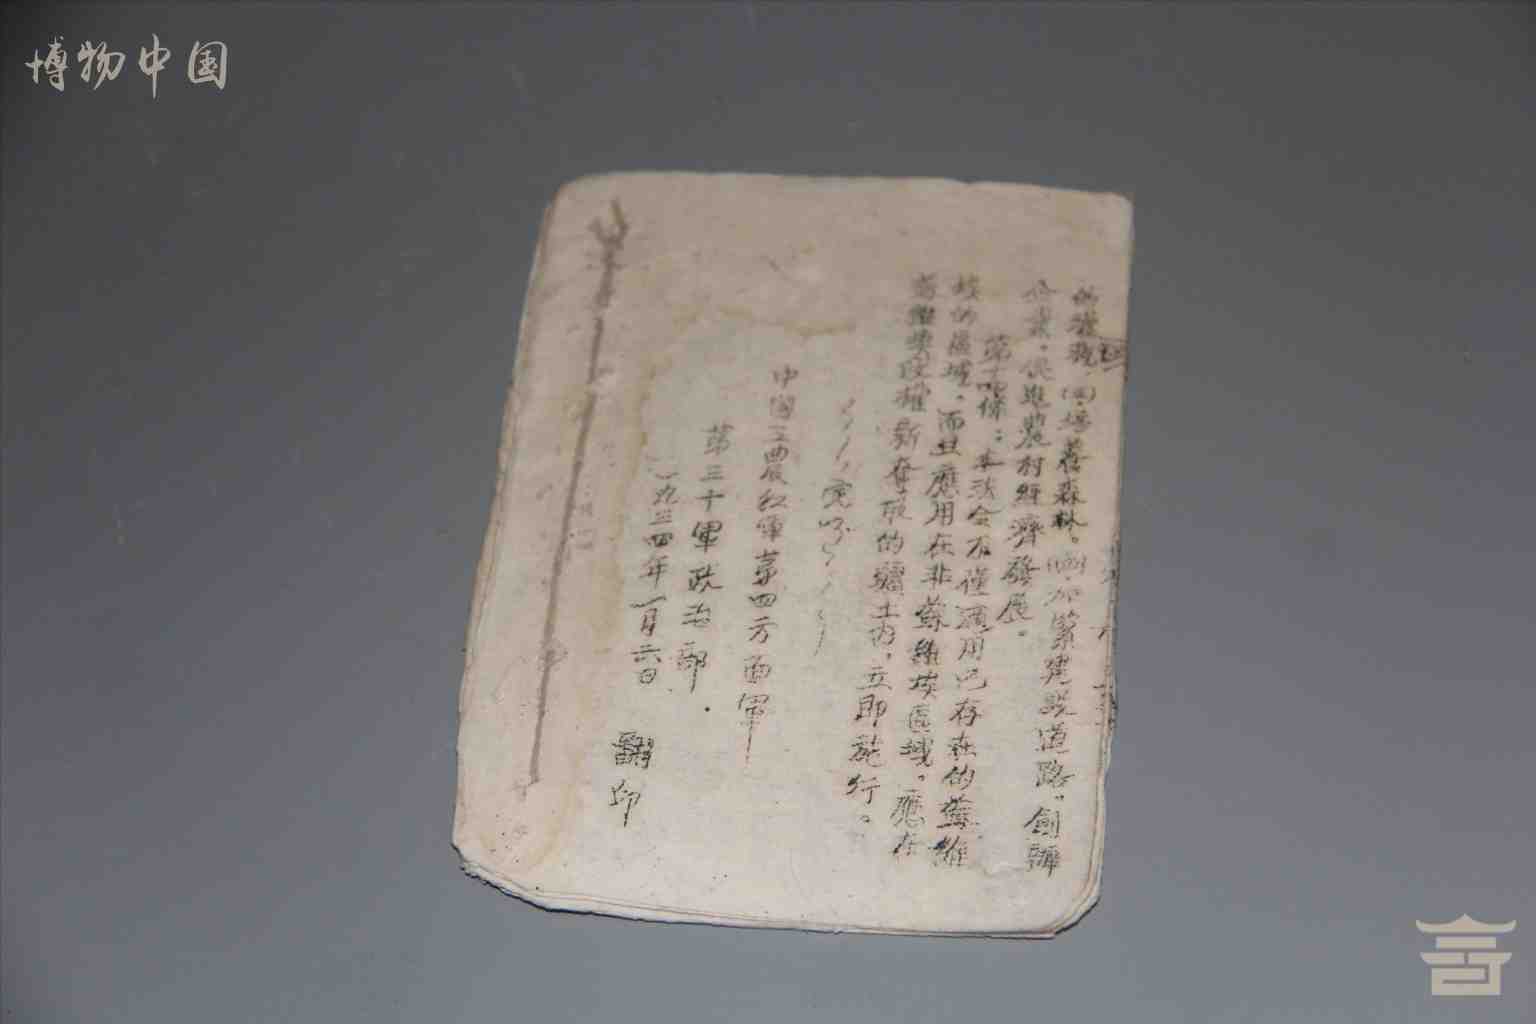 博物中国
的證號。㈢培養森林。㈣加緊建設道路。創辦
企業。促進農村經濟發展。
第十四條：本法令不僅适用已存在的蘇維
埃的區域。而且應用在非蘇維埃區域。應在
蘇維埃政權新奪取的疆土内，立即施行。
完
中國工農紅軍第四方面軍
第三十軍政治部．
一九三四年一月六日
翻印